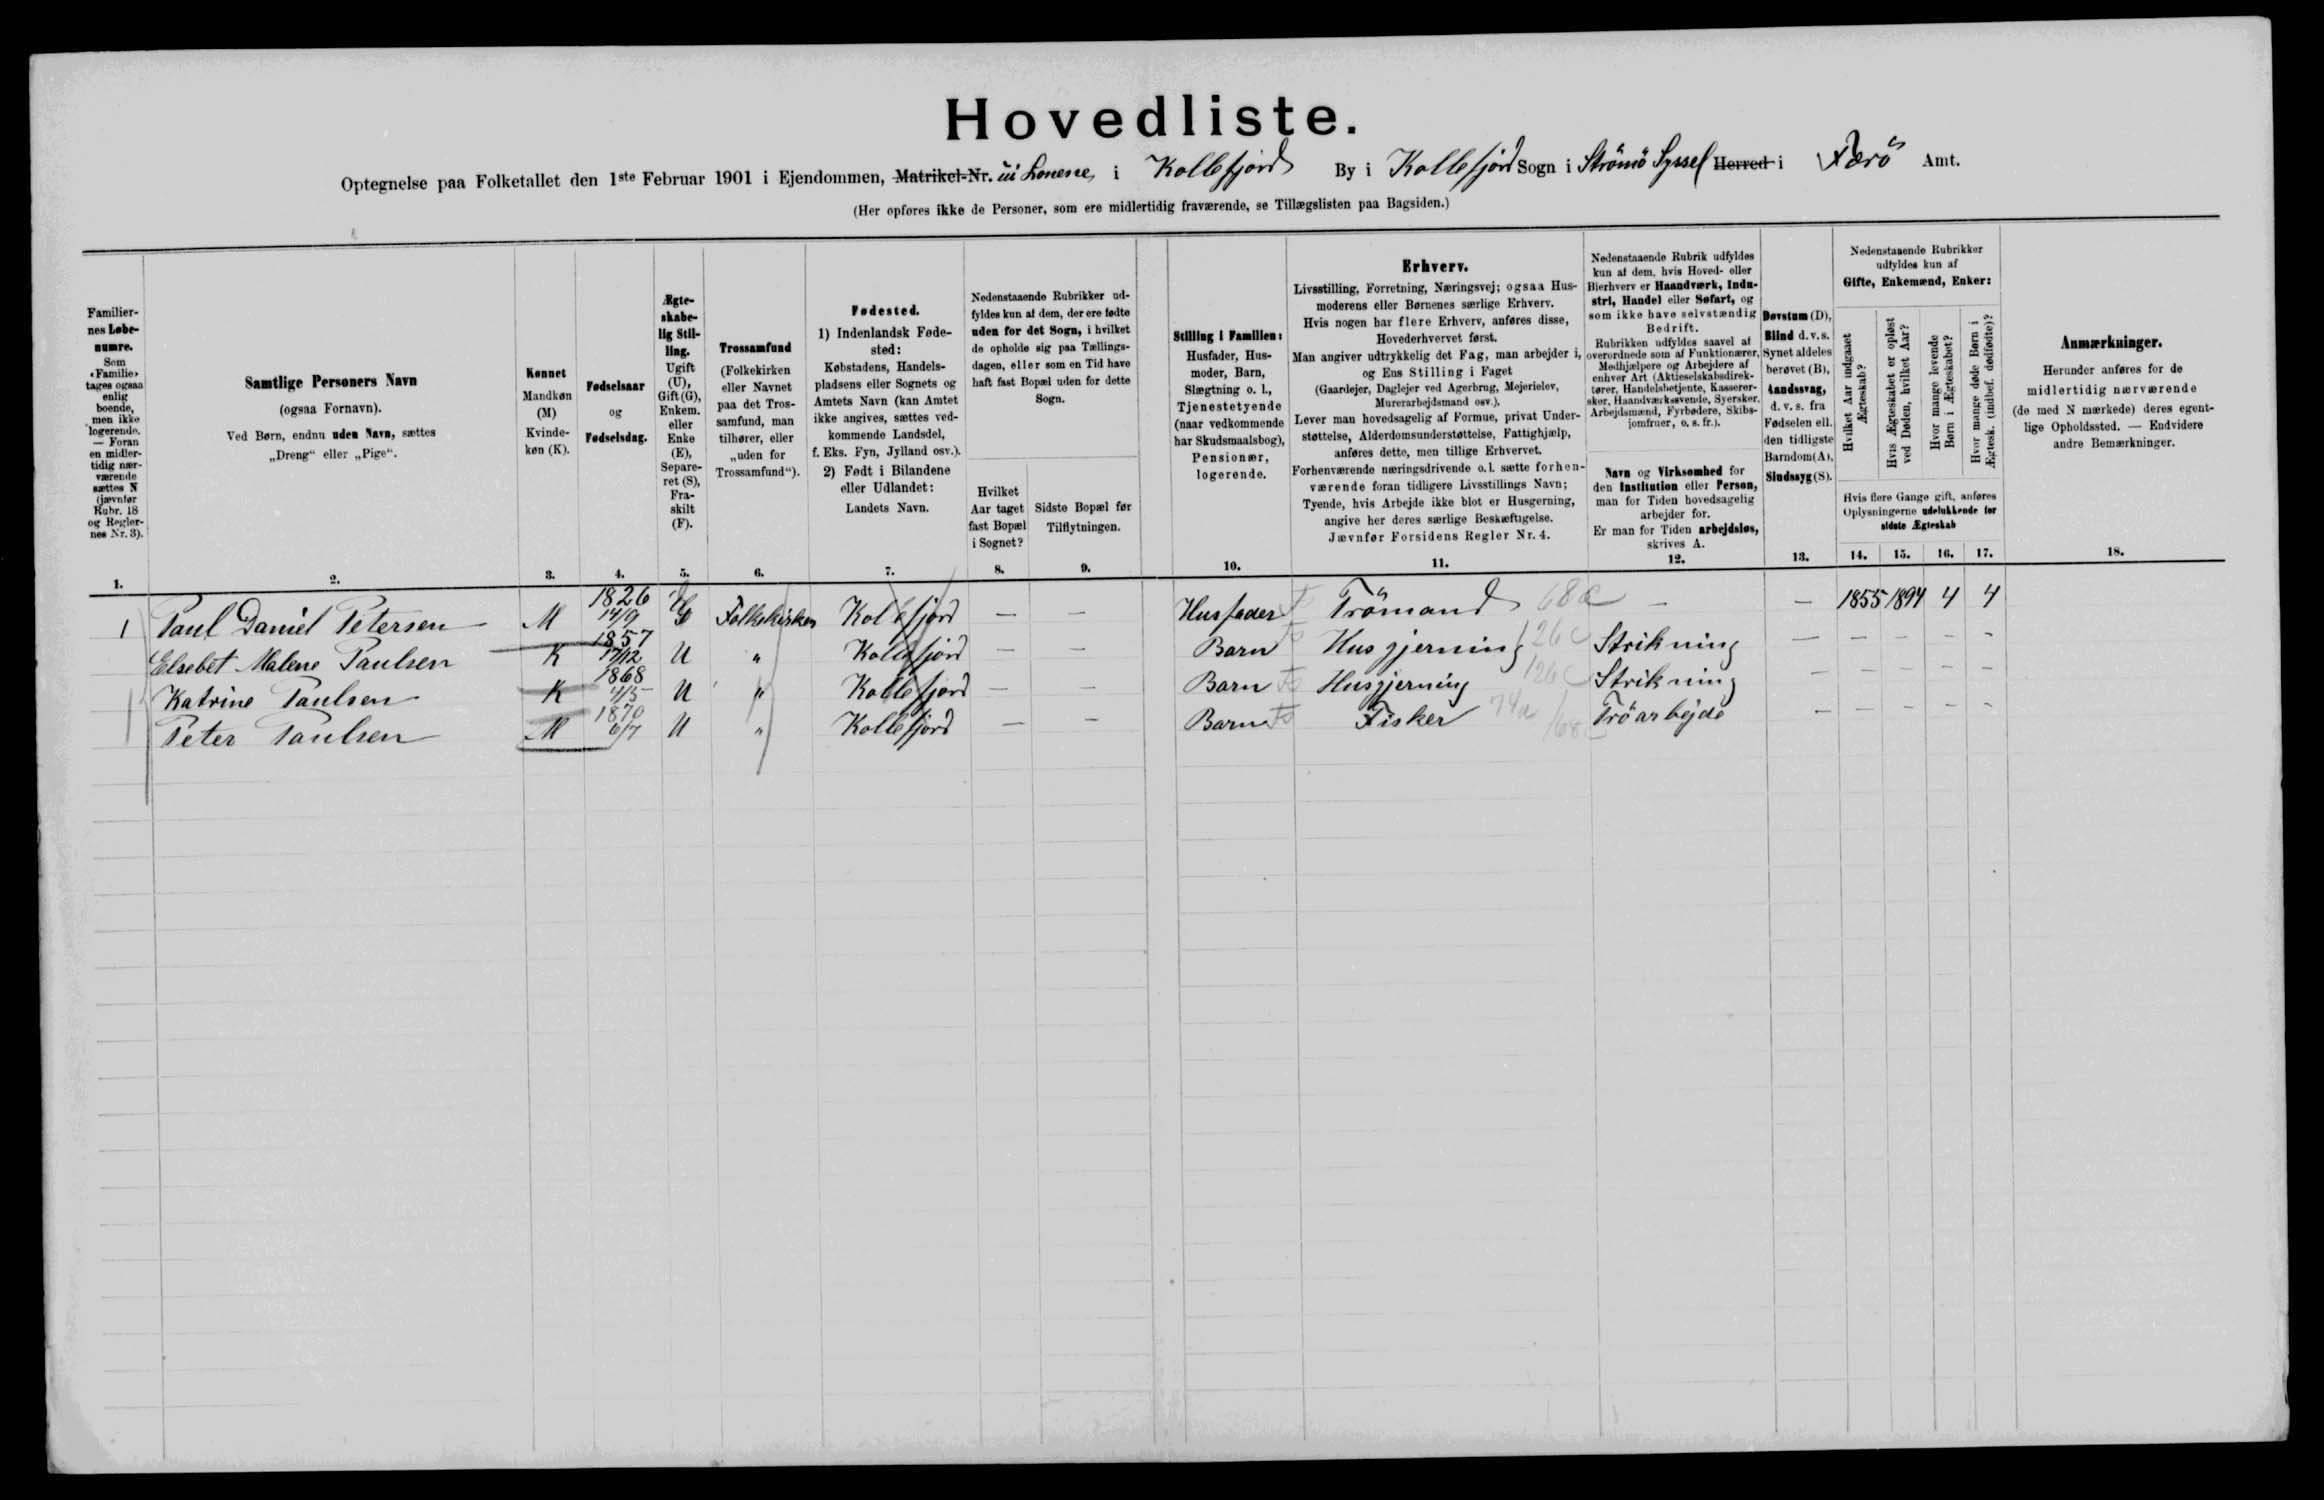 Hovedliste.
Optegnelse paa Folketallet den 1ste Februar 1901 i Ejendommen, Matrikel-Nr. i Kollefjord By i Kollefjord Sogn i Strömö Syssel Herred i Færö Amt.
(Her opføres ikke de Personer, som ere midlertidig fraværende, se Tillægslisten paa Bagsiden.)
Familiernes Løbenumre.
Som «Familie» tages ogsaa enlig boende, men ikke logerende. — Foran en midlertidig nærværende sættes N (jævnfør Rubr. 18 og Reglernes Nr. 3).
Samtlige Personers Navn
(ogsaa Fornavn).
Ved Børn, endnu uden Navn, sættes
„Dreng“ eller „Pige“.
Kønnet
Mandkøn (M)
Kvindekøn (K).
Fødselsaar
og
Fødselsdag.
Ægteskabelig Stilling.
Ugift (U), Gift (G), Enkem. eller Enke (E), Separeret (S), Fraskilt (F).
Trossamfund
(Folkekirken eller Navnet paa det Trossamfund, man tilhører, eller „uden for Trossamfund“).
Fødested.
1) Indenlandsk Fødested:
Købstadens, Handelspladsens eller Sognets og Amtets Navn (kan Amtet ikke angives, sættes vedkommende Landsdel, f. Eks. Fyn, Jylland osv.).
2) Født i Bilandene eller Udlandet:
Landets Navn.
Nedenstaaende Rubrikker udfyldes kun af dem, der ere fødte uden for det Sogn, i hvilket de opholde sig paa Tællingsdagen, eller som en Tid have haft fast Bopæl uden for dette Sogn.
Hvilket Aar taget fast Bopæl i Sognet?
Sidste Bopæl før Tilflytningen.
Stilling i Familien:
Husfader, Husmoder, Barn, Slægtning o. l., Tjenestetyende (naar vedkommende har Skudsmaalsbog), Pensionær, logerende.
Erhverv.
Livsstilling, Forretning, Næringsvej; ogsaa Husmoderens eller Børnenes særlige Erhverv.
Hvis nogen har flere Erhverv, anføres disse, Hovederhvervet først.
Man angiver udtrykkelig det Fag, man arbejder i, og Ens Stilling i Faget
(Gaardejer, Daglejer ved Agerbrug, Mejerielev, Murerarbejdsmand osv.).
Lever man hovedsagelig af Formue, privat Understøttelse, Alderdomsunderstøttelse, Fattighjælp, anføres dette, men tillige Erhvervet.
Forhenværende næringsdrivende o. l. sætte forhenværende foran tidligere Livsstillings Navn; Tyende, hvis Arbejde ikke blot er Husgerning, angive her deres særlige Beskæftigelse.
Jævnfør Forsidens Regler Nr. 4.
Nedenstaaende Rubrik udfyldes kun af dem, hvis Hoved- eller Bierhverv er Haandværk, Industri, Handel eller Søfart, og som ikke have selvstændig Bedrift.
Rubrikken udfyldes saavel af overordnede som af Funktionærer, Medhjælpere og Arbejdere af enhver Art (Aktieselskabsdirektører, Handelsbetjente, Kasserersker, Haandværkssvende, Syersker, Arbejdsmænd, Fyrbødere, Skibsjomfruer, o. s. fr.).
Navn og Virksomhed for den Institution eller Person, man for Tiden hovedsagelig arbejder for.
Er man for Tiden arbejdsløs, skrives A.
Døvstum (D), Blind d. v. s. Synet aldeles berøvet (B), Aandssvag, d. v. s. fra Fødselen ell. den tidligste Barndom (A), Sindssyg (S).
Nedenstaaende Rubrikker udfyldes kun af
Gifte, Enkemænd, Enker:
Hvilket Aar indgaaet Ægteskab?
Hvis Ægteskabet er opløst ved Døden, hvilket Aar?
Hvor mange levende Børn i Ægteskabet?
Hvor mange døde Børn i Ægtesk. (indbef. dødfødte)?
Hvis flere Gange gift, anføres Oplysningerne udelukkende for sidste Ægteskab
Anmærkninger.
Herunder anføres for de midlertidig nærværende (de med N mærkede) deres egentlige Opholdssted. — Endvidere andre Bemærkninger.
1. 2. 3. 4. 5. 6. 7. 8. 9. 10. 11. 12. 13. 14. 15. 16. 17. 18.
1 Paul Daniel Petersen M 1826 14/9 Folkekirken Kollefjord — — Husfader Trömand 68c — — 1855 1894 4 4
Elsebet Malene Paulsen K 1857 17/12 U „ Kollefjord — — Barn Husgjerning 126c Strikning — — — — —
Katrine Paulsen K 1868 4/5 U „ Kollefjord — — Barn Husgjerning 126c Strikning — — — — —
Peter Paulsen M 1870 6/7 U „ Kollefjord — — Barn Fisker 74a/68c Tröarbejde — — — — —